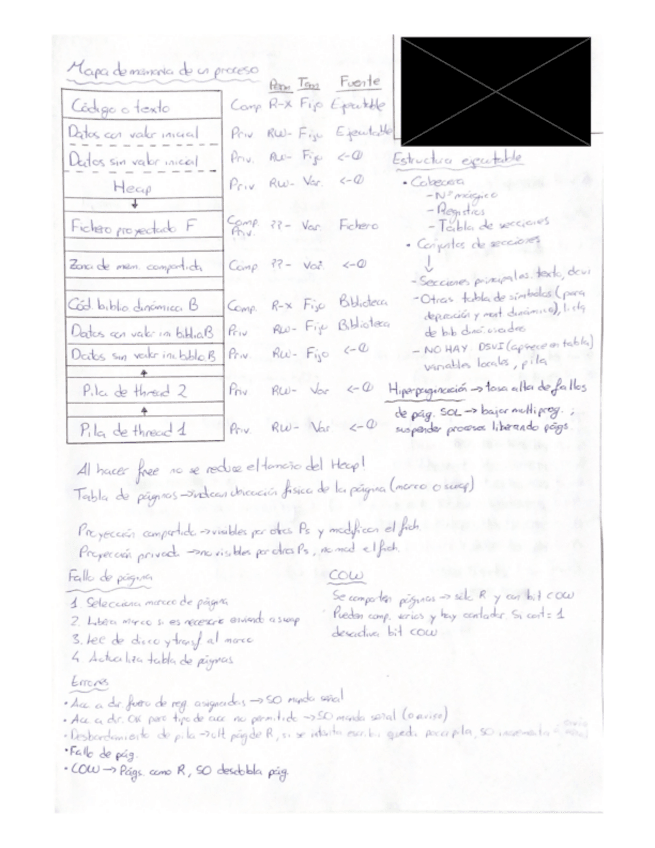 Mapa de memoria de un proceso
Perm Tam Fuente
Código o texto Comp R-X Fijo Ejecutable
Datos con valor inicial Priv RW- Fijo Ejecutable
Datos sin valor inicial Priv. RW- Fijo <-0
Heap Priv RW- Var. <-0
Fichero proyectado F Comp. Priv. ??- Var Fichero
Zona de mem. compartida Comp ??- Var. <-0
Cód biblio dinámica B Comp. R-X Fijo Biblioteca
Datos con valor in. biblio B Priv RW- Fijo Biblioteca
Datos sin valor in. biblio B Priv RW- Fijo <-0
Pila de thread 2 Priv RW- Var <-0
Pila de thread 1 Priv RW- Var. <-0
Estructura ejecutable
• Cabecera
- Nº mágico
- Registros
- Tabla de secciones
• Conjuntos de secciones
- Secciones principales. texto, dcvi
- Otras tabla de símbolos (para
depuración y mont dinámico), list
de bib dinámicas
- NO HAY DSVI (aparece en tabla)
variables locales, pila
Hiperpaginación → tasa alta de fallos
de pág. SOL → bajar multiprog.,
suspender procesos liberando págs.
Al hacer free no se reduce el tamaño del Heap!
Tabla de páginas → indican ubicación física de la página (marco o swap)
Proyección compartida → visibles por otros Ps y modifican el fich
Proyección privada → no visibles por otros Ps, no mod el fich
Fallo de página
1. Selecciona marco de página
2. Libera marco si es necesario enviando a swap
3. Lec de disco y transf al marco
4. Actualiza tabla de páginas
COW
Se comparten páginas → solo R y con bit COW
Pueden comp. varios y hay contador Si cont = 1
desactiva bit COW
Errores
• Acc a dir. fuera de reg asignadas → SO manda señal
• Acc a dir. OK pero tipo de acc no permitido → SO manda señal (o aviso)
• Desbordamiento de pila → últ pág de R, si se intenta escribir queda poca pila, SO
• Fallo de pág.
• COW → Págs. como R, SO desdobla pág.